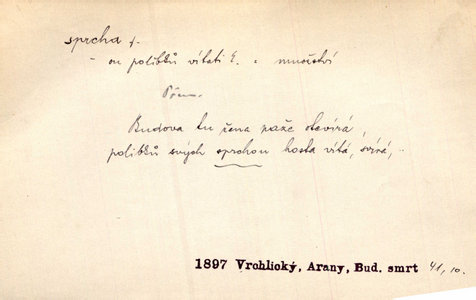 sprcha f.
- ou polibků vítati k. = množství
Přen.
Budova tu žena paže otevírá,
polibků svých sprchou hosta vítá, svírá,
1897 Vrchlický, Arany, Bud. smrt 41, 10.